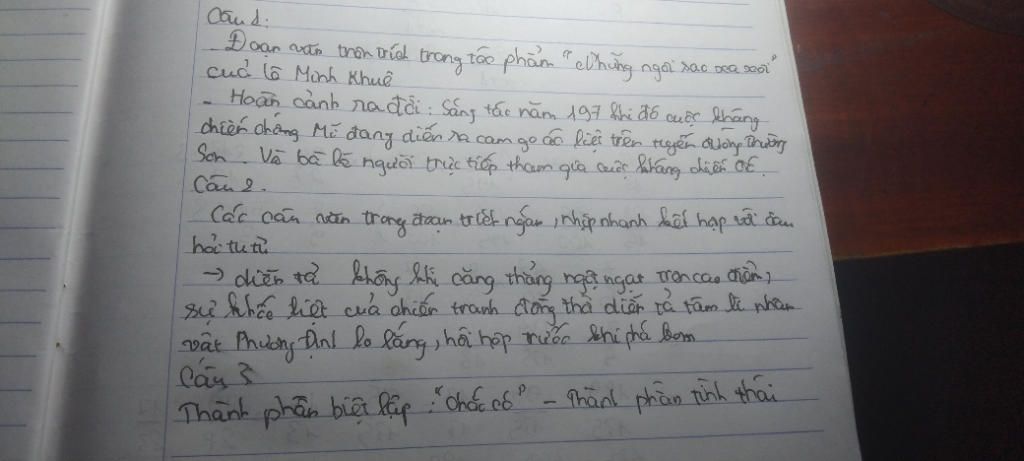 Câu 1:
- Đoạn văn trên trích trong tác phẩm "Những ngôi sao xa xôi"
của Lê Minh Khuê
- Hoàn cảnh ra đời: Sáng tác năm 197 khi đó cuộc kháng
chiến chống Mĩ đang diễn ra cam go ác liệt trên tuyến đường Trường
Sơn. Và bà là người trực tiếp tham gia cuộc kháng chiến đó.
Câu 2.
Các câu văn trong đoạn trích ngắn, nhịp nhanh kết hợp với câu
hỏi tu từ
→ diễn tả không khí căng thẳng ngột ngạt trên cao điểm,
sự khốc liệt của chiến tranh đồng thời diễn tả tâm lí nhân
vật Phương Định lo lắng, hồi hộp trước khi phá bom
Câu 3
Thành phần biệt lập: "Chắc có" - Thành phần tình thái